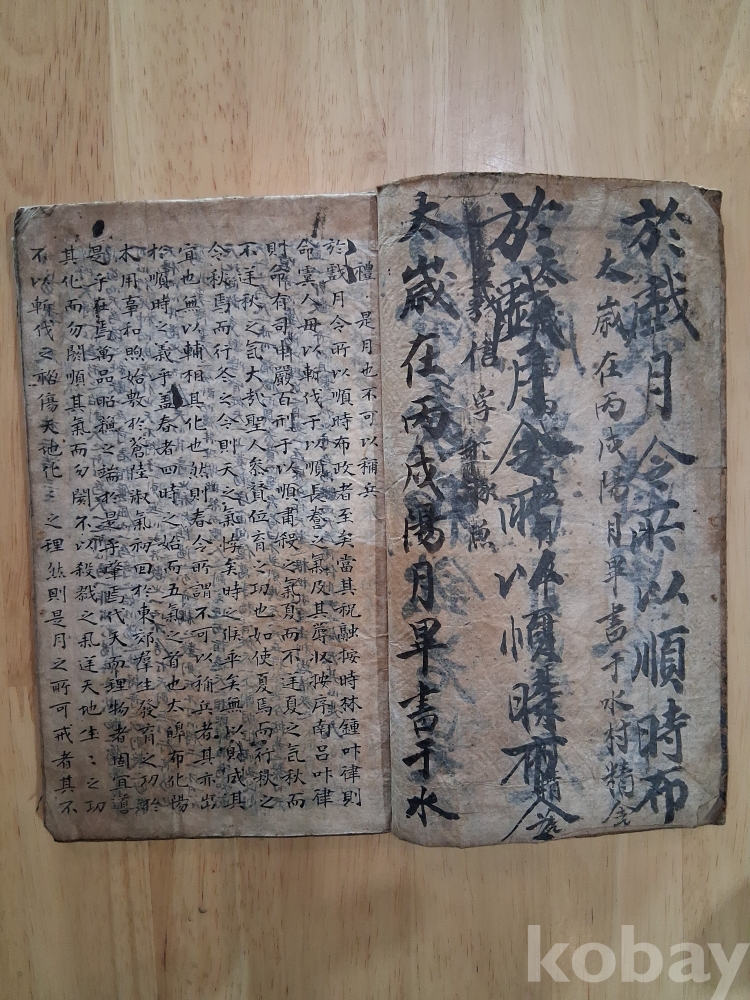 於戱月令所以順時布
太歲在丙戌陽月畢書于水村精舍
於戱月令所以順時布
義信孚於豚魚
太歲在丙戌陽月畢書于水
禮 是月也不可以稱兵
於戱月令所以順時布政者至矣當其祝融按時林鍾叶律則
命虞人毋以斬伐于以順長養之氣及其蓐收按序南呂叶律
則命有司申嚴百刑于以順肅殺之氣夏而不逆夏之氣秋而
不逆秋之氣大哉聖人參贊位育之功也如使夏焉而行秋之
令秋焉而行冬之令則天之氣悖矣時之候乖矣無以財成其
宜也無以輔相其化也然則春令所謂不可以稱兵者其亦出
於順時之義乎盖春者四時之始而五氣之首也太皥布化陽
木用事和煦始敷於蒼陸淑氣初回於東郊羣生發育之功於
是乎在焉萬品昭蘇之端於是乎肇焉代天而理物者固宜導
其化而勿閼順其氣而勿閼不以殺戮之氣逆天地生ミ之功
不以斬伐之 傷天地化ミ之理然則是月之所可戒者其不
kobay